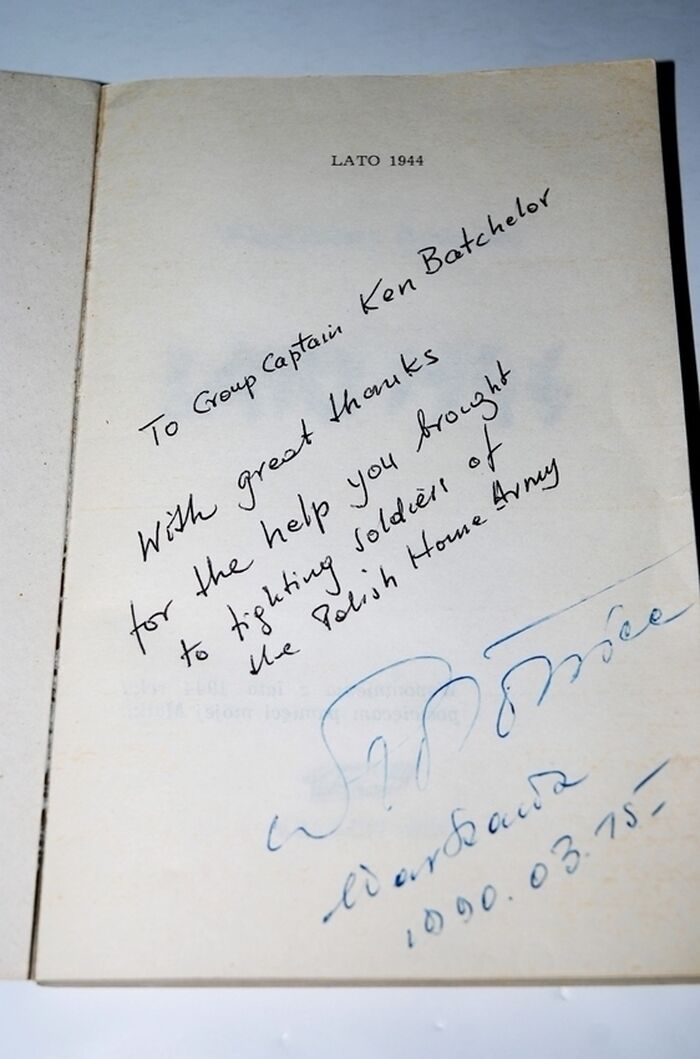 LATO 1944
To Group Captain Ken Batchelor
With great thanks
for the help you brought
to fighting soldiers of
the Polish Home Army
Warszawa
1990.03.15-